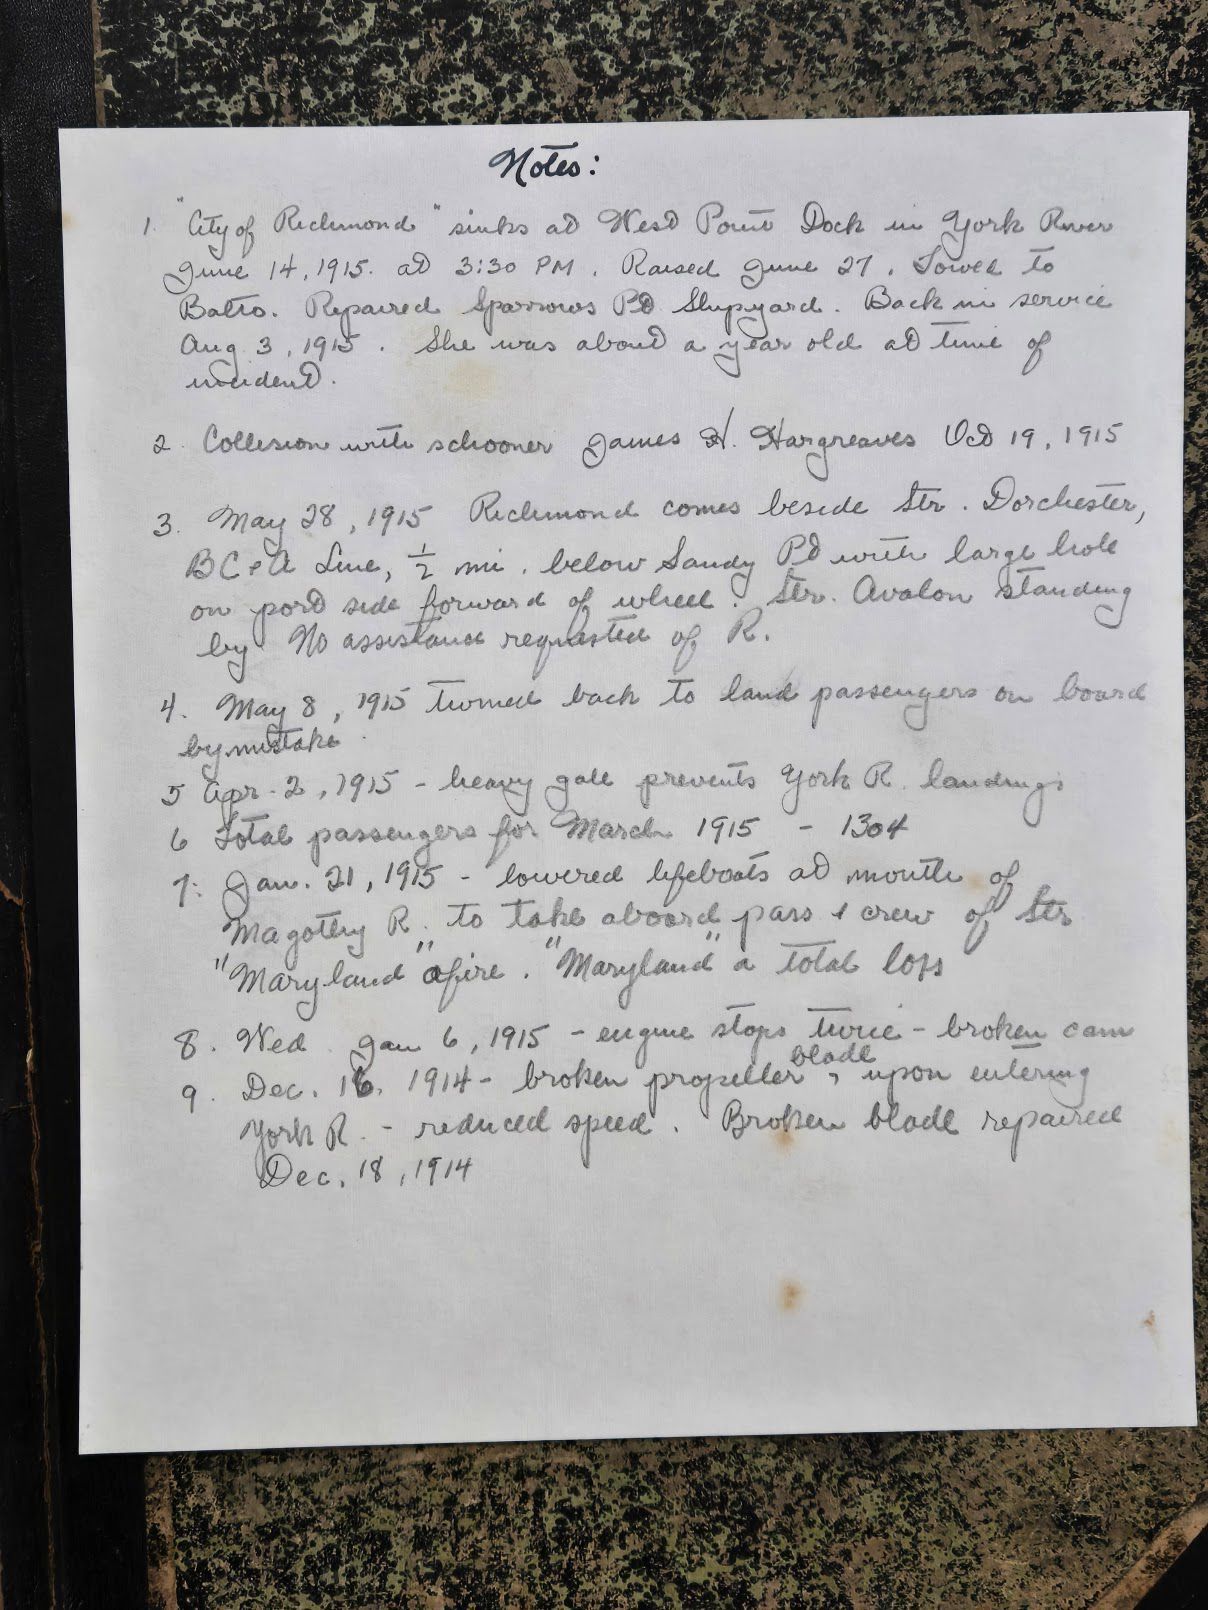 Notes:
1. "City of Richmond" sinks at West Point Dock in York River
June 14, 1915. at 3:30 PM. Raised June 27. Towed to
Balto. Repaired Sparrows Pt Shipyard. Back in service
Aug 3, 1915. She was about a year old at time of
incident.
2. Collision with schooner James H. Hargreaves Oct 19, 1915
3. May 28, 1915 Richmond comes beside Str. Dorchester,
BC&A Line, ½ mi. below Sandy Pt with large hole
on port side forward of wheel. Str. Avalon standing
by No assistance requested of R.
4. May 8, 1915 turned back to land passengers on board
by mistake.
5 Apr. 2, 1915 - heavy gale prevents York R. landings
6 Total passengers for March 1915 - 1304
7. Jan. 21, 1915 - lowered lifeboats at mouth of
Magothy R. to take aboard pass & crew of Str
"Maryland" afire. "Maryland" a total loss
8. Wed. Jan 6, 1915 - engine stops twice - broken cam
9. Dec. 16, 1914 - broken propeller blade, upon entering
York R. - reduced speed. Broken blade repaired
Dec. 18, 1914